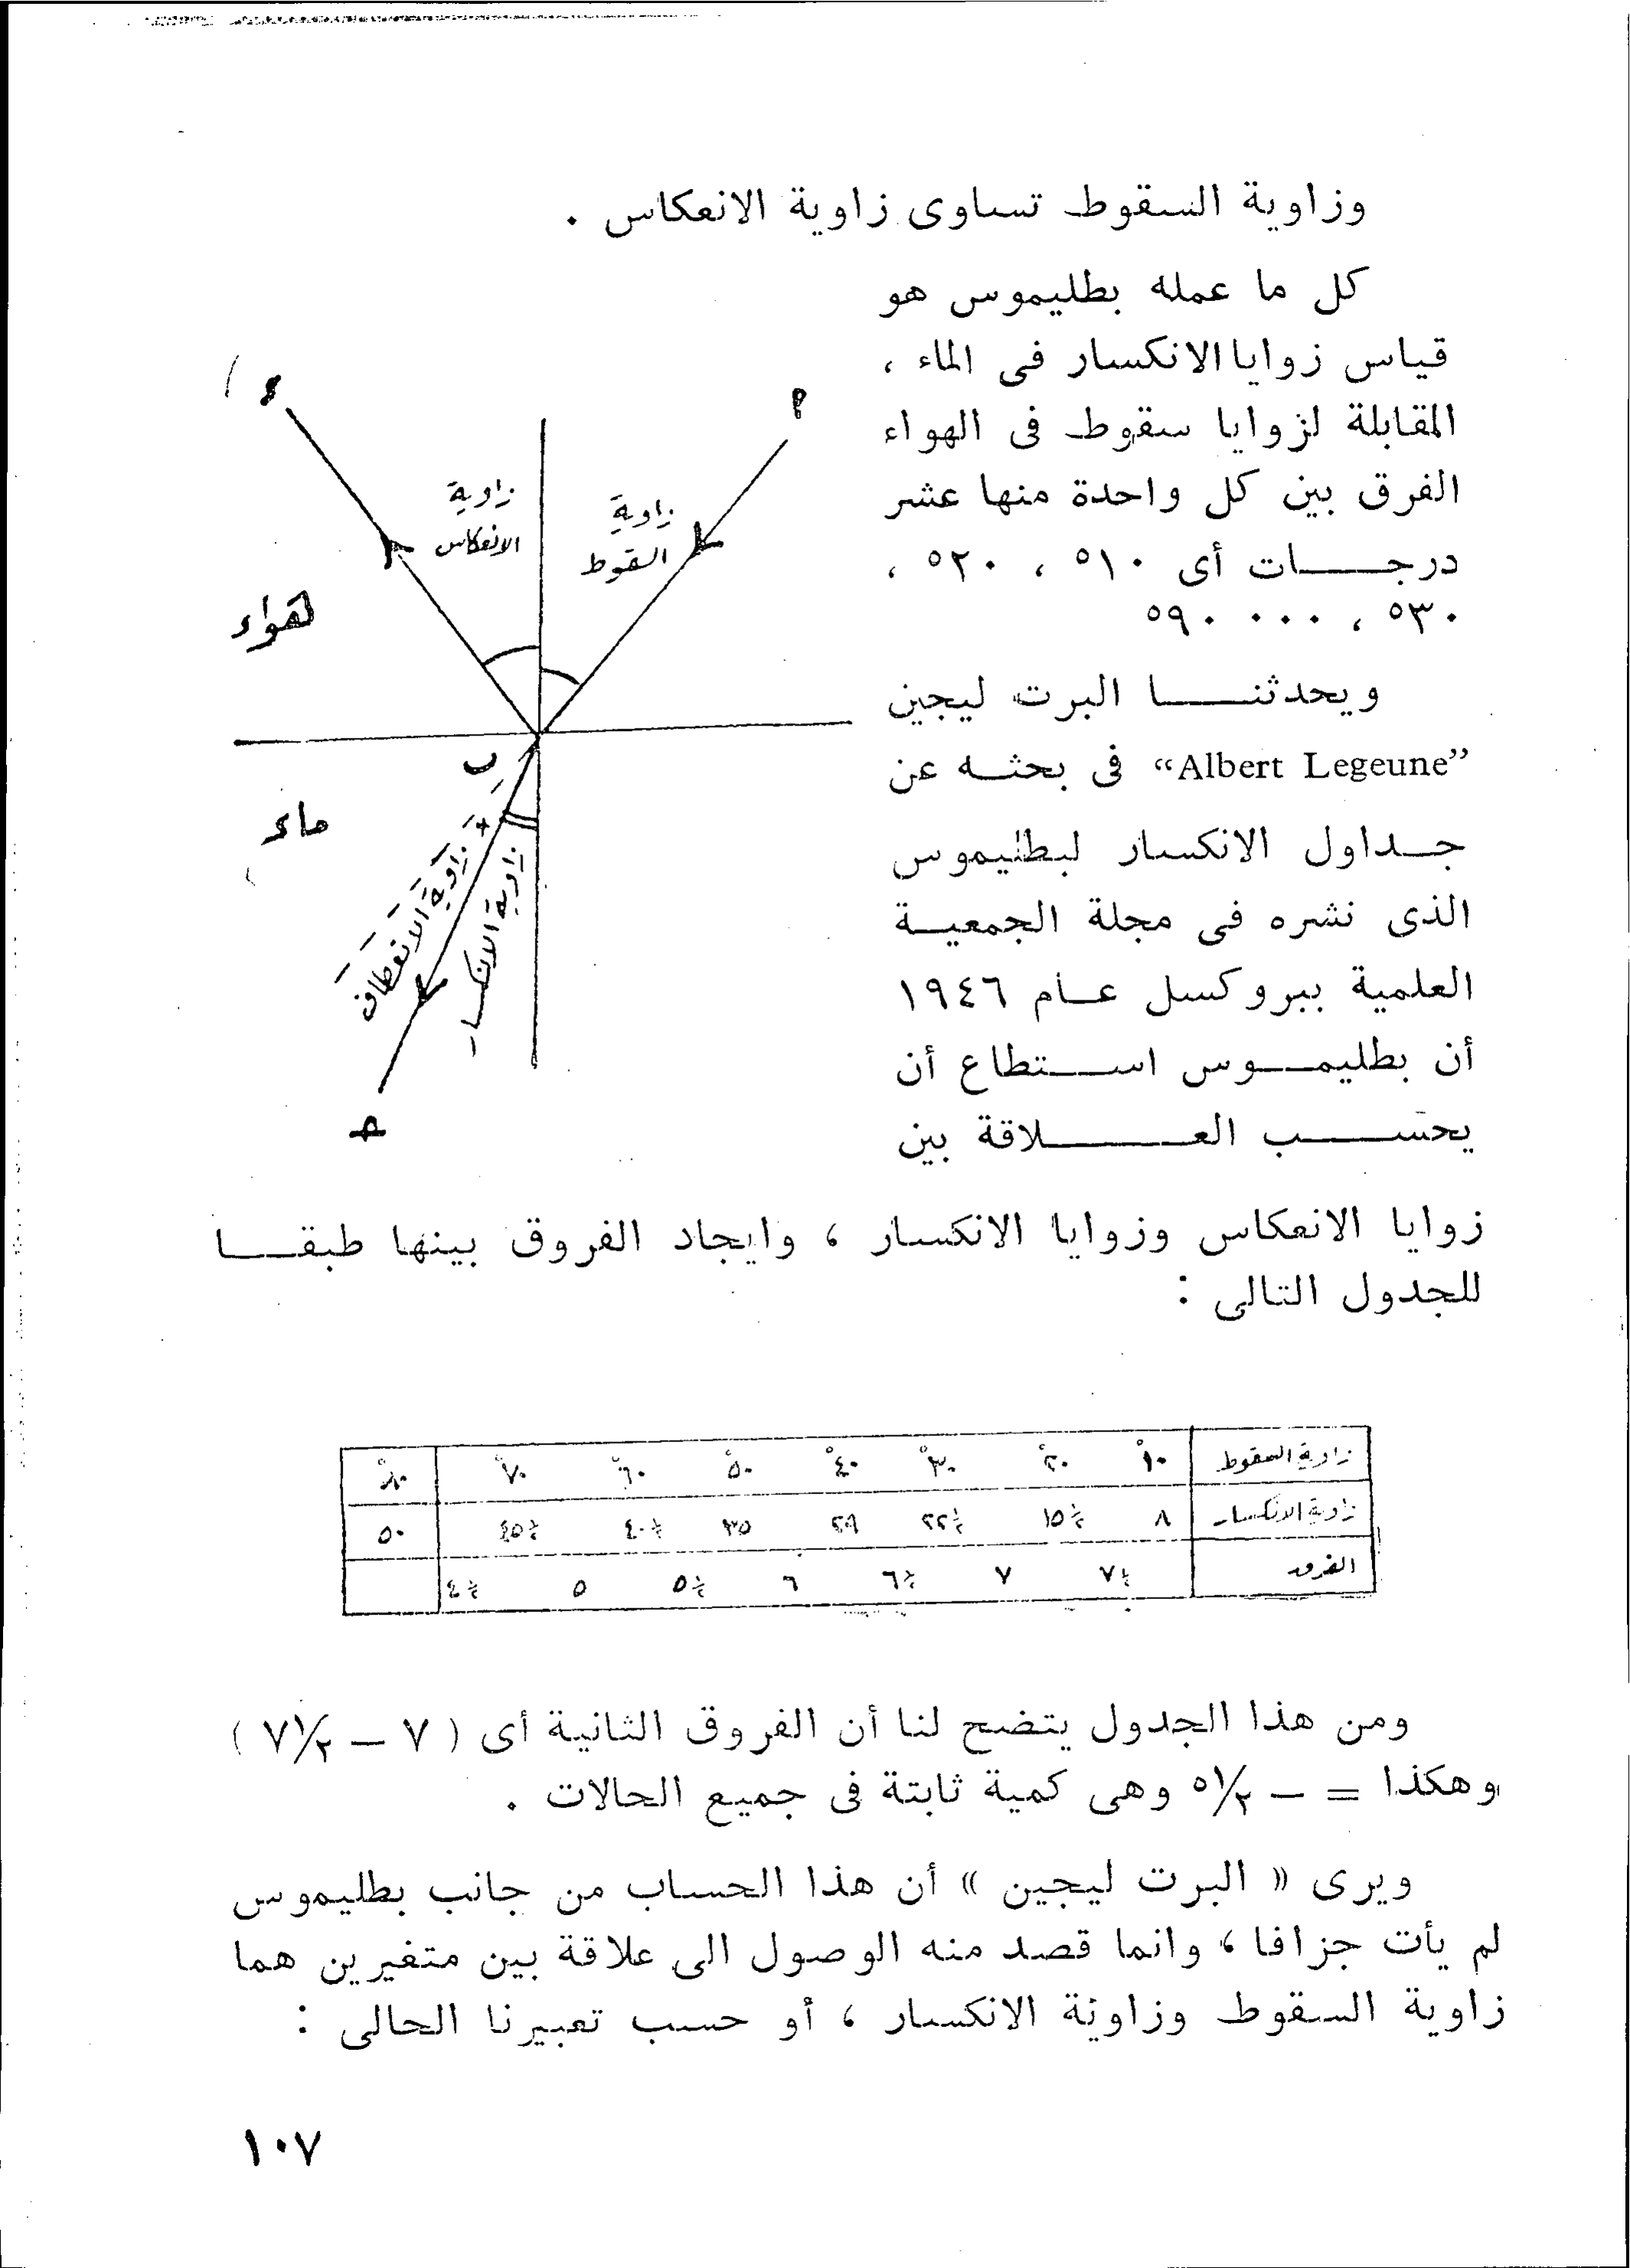 وزاوية السقوط تساوى زاوية الانعكاس .
كل ما عمله بطليموس هو
قياس زوايا الانكسار فى الماء ،
المقابلة لزوايا سقوط فى الهواء
الفرق بين كل واحدة منها عشر
درجــــات أى ٥١٠ ، ٥٢٠ ،
٥٣٠ ، ٠٠٠ ٥٩٠
ويحدثنــــا البرت ليجين
“Albert Legeune” فى بحثــه عن
جــداول الانكسار لبطليموس
الذى نشره فى مجلة الجمعيــة
العلمية ببروكسل عــام ١٩٤٦
أن بطليمــوس اســتطاع أن
يحســـب العــــلاقة بين
زوايا الانعكاس وزوايا الانكسار ، وايجاد الفروق بينها طبقــا
للجدول التالى :
ء
م
زاوية
الانعكاس
زاوية
القوط
هواء
ب
ماء
زاوية الانعطاف
زاوية الانكسار
حـ
زاوية السقوط ١٠° ٢٠° ٣٠° ٤٠° ٥٠° ٦٠° ٧٠° ٨٠°
زاوية الانكسار ٨ ١٥½ ٢٢½ ٢٩ ٣٥ ٤٠½ ٤٥½ ٥٠
الفروق ٧½ ٧ ٦½ ٦ ٥½ ٥ ٤½
ومن هذا الجدول يتضح لنا أن الفروق الثانية أى ( ٧ – ٧١/٢ )
وهكذا = – ٥١/٢ وهى كمية ثابتة فى جميع الحالات .
ويرى « البرت ليجين » أن هذا الحساب من جانب بطليموس
لم يأت جزافا ، وانما قصد منه الوصول الى علاقة بين متغيرين هما
زاوية السقوط وزاوية الانكسار ، أو حسب تعبيرنا الحالى :
١٠٧